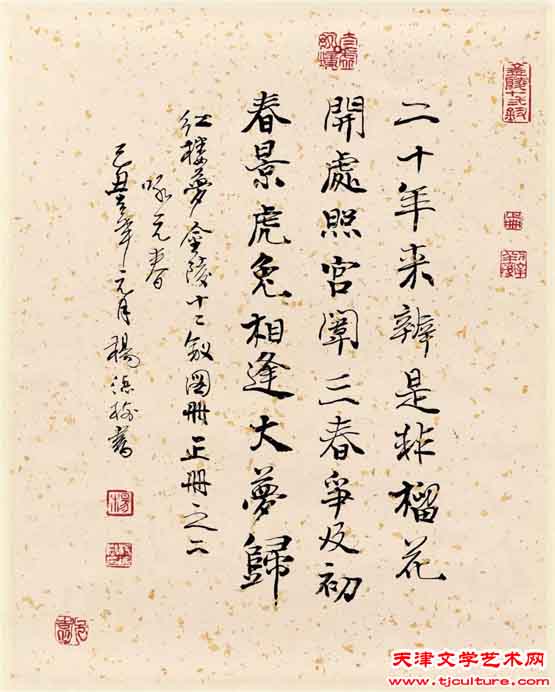 二十年来辨是非榴花
開處照宮闈三春爭及初
春景虎兔相逢大夢歸
红楼夢金陵十二釵图册正册之二
咏元春
己丑年元月楊
書
楊
天津文学艺术网
www.tjculture.com